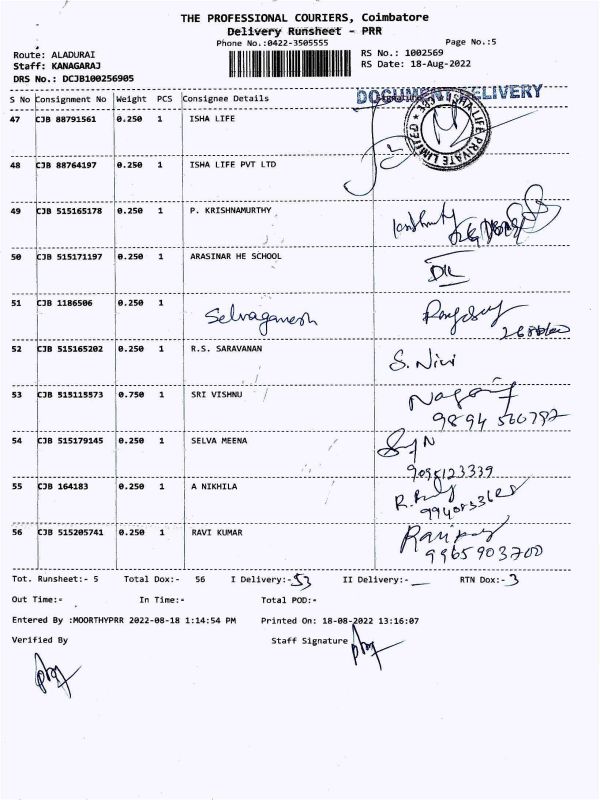 THE PROFESSIONAL COURIERS, Coimbatore
Delivery Runsheet - PRR
Phone No.:0422-3505555
Page No.:5
Route: ALADURAI
RS No.: 1002569
Staff: KANAGARAJ
RS Date: 18-Aug-2022
DRS No.: DCJB100256905
DOCUMENT DELIVERY
S No Consignment No Weight PCS Consignee Details Signature
ISHA LIFE PRIVATE LIMITED
47 CJB 88791561 0.250 1 ISHA LIFE
48 CJB 88764197 0.250 1 ISHA LIFE PVT LTD
49 CJB 515165178 0.250 1 P. KRISHNAMURTHY
50 CJB 515171197 0.250 1 ARASINAR HE SCHOOL
51 CJB 1186506 0.250 1 Selvaganesh
52 CJB 515165202 0.250 1 R.S. SARAVANAN S. Nivi
53 CJB 515115573 0.750 1 SRI VISHNU
54 CJB 515179145 0.250 1 SELVA MEENA
9095123339
55 CJB 164183 0.250 1 A NIKHILA
56 CJB 515205741 0.250 1 RAVI KUMAR
9965903700
Tot. Runsheet:- 5 Total Dox:- 56 I Delivery:- 53 II Delivery:- RTN Dox:- 3
Out Time:- In Time:- Total POD:-
Entered By :MOORTHYPRR 2022-08-18 1:14:54 PM Printed On: 18-08-2022 13:16:07
Verified By Staff Signature